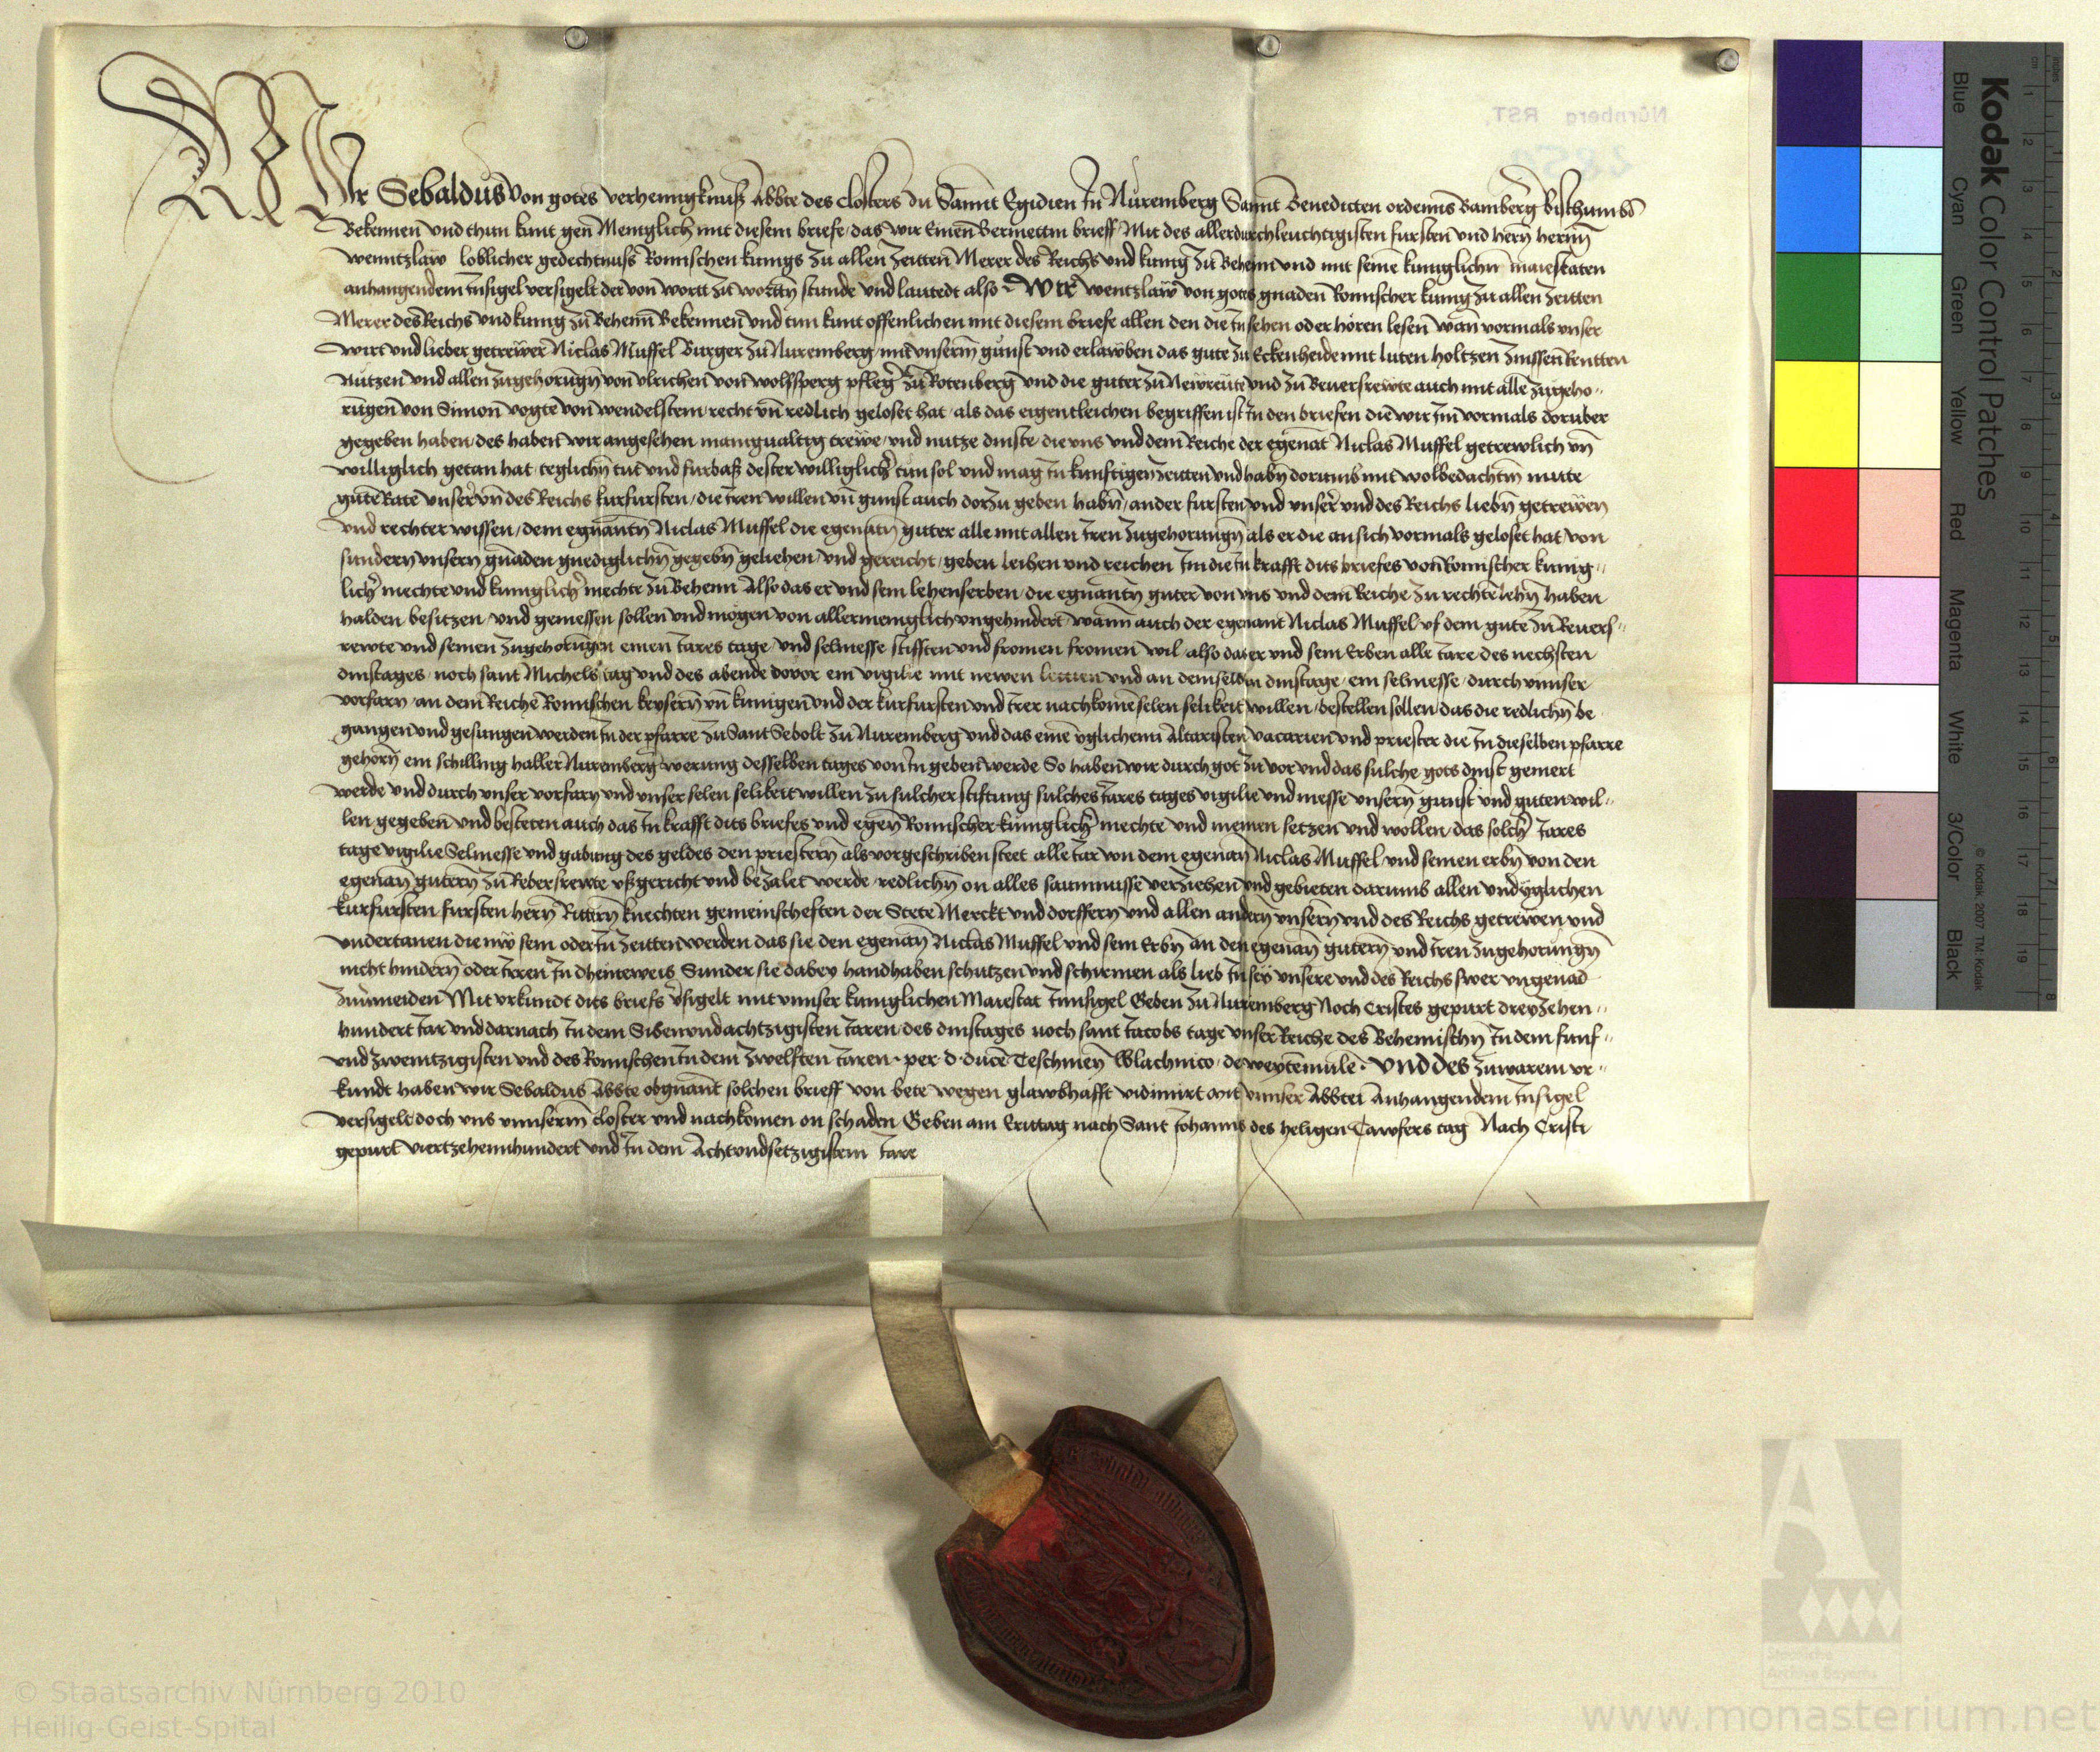 Wir Sebaldus von gotes verhenngknuß Abbte des closters zu Sannt Egidien In Nuremberg Sannt Benedicten ordenns Bamberger bisthumbs
Bekennen und thun kunt gen Meniglich mit diesem briefe das wir Einen Bermetin brieff Mit des allerdurchleuchtigisten fursten und hern hernn
wenntzlaw loblicher gedechtnuss Romischen kunigs zu allen zeitten Merer des Reichs und kunig zu Behem und mit seine kuniglichn maiestaten
anhangendem Insigel versigelt der von wortt zu worttn stunde und lautedt also Wir wentzlaw von gotes gnaden Romischer kunig zu allen zeitten
Merer des Reichs und kunig zu Behem Bekennen und tun kunt offenlichen mit diesem briefe allen den die In sehen oder horen lesen wan vormals unser
wirt und lieber getrewer Niclas Muffel Burger zu Nuremberg mit unserm gunst und erlawben das gute zu Eckenheide mit luten holtzen zinssen Rentten
Nutzen und allen zugehorungn von Ulrichen von wolffsperg pfleger zu Rotenberg und die guter zu Newreute und zu Beuersrewte auch mit alle zugeho
rungen von Simon vogte von wendelstein recht un redlich geloset hat als das eigentleichen begriffen ist In den briefen die wir Im vormals doruber
gegeben haben des haben wir angesehen manigualtig trewe und nutze dinste die uns und dem Reiche der egenat Niclas Muffel getrewlich un
williglich getan hat teglichn tut und furbaß dester williglicher tun sol und mag In kunftigen zeitten und habn dorumb mit wolbedachtm mute
gute Rate unser un des Reichs kurfursten die Iren willen un gunst auch dorzu geben habn ander fursten und unser und des Reichs liebn getrewen
und rechter wissen dem egnantn Niclas Muffel die egenatn guter alle mit allen Iren zugehorungn als er die an sich vormals geloset hat von
sundern unsern gnaden gnediglichn gegebn geliehen und gereicht geben leihen und reichen Im die In krafft dits briefes von Romischer kunig
licher mechte und kuniglicher mechte zu Behem Also das er und sein lehenserben die egnantn guter von uns und dem Reiche zu rechte lehn haben
halden besitzen und geniessen sollen und mogen von allermeniglich ungehindert wann auch der egenant Niclas Muffel uf dem gute zu Reuers
rewte und seinen zugehorungen einen Iares tage und selmesse stifften und fromen fromen wil also das er und sein Erben alle Iare des nechsten
dinstages noch sant Michels tag und des abende dovor ein vigilie mit newen und an demselben dinstage ein selmesse durch unnser
vorfarn an dem Reiche Romischen keysern un kunigen und der kurfursten und Irer nachkomen selen selikeit willen bestellen sollen das die redlichn be
gangen und gesungen werden In der pfarre zu Sant Sebolt zu Nuremberg und das eine yglichenn Altaristen vicarien und priester die In dieselben pfarre
gehorn ein schilling haller Nuremberg werung desselben tages von In geben werde So haben wir durch got zu vor und das sulche gots dinst gemert
werde und durch unser vorfarn und unser selen selikeit willen zu sulcher stiftung sulches Iares tages vigilie und messe unsern gunst und guten wil
len gegeben und besteten auch das In krafft dits briefes und egen Romischer kuniglicher mechte und meinen setzen und wollen das solcher Iares
tage vigilie Selmesse und gabung des geldes den priestern als vorgeschriben steet alle Iar von dem egenan Niclas Muffel und seinen erbn von den
egenan gutern zu Rebersrewte ußgericht und bezalet werde redlichn on alles saumnusse verziehen und gebieten darumb allen und yglichen
kurfursten fursten hern Rittern knechten gemeinscheften der Stete Merckt und dorffern und allen andern unsern und des Reichs getrewen und
undertanen die nw sein oder In zeitten werden das sie den egenan Niclas Muffel und sein Erbn an den egenan gutern und Iren zugehorungn
nicht hindern oder Irren In dheineweis Sunder sie dabey handhaben schutzen und schirmen als lieb In sey unsere und des Reichs swer ungenad
zuvmeiden Mit urkundt dits briefs vsigelt mit unnser kuniglichen Maiestat Innsigel Geben zu Nuremberg Noch Cristes gepurt dreyzehen
hundert Iar und darnach In dem Sibenundachtzigisten Iaren des dinstages noch sant Iacobs tage unser Reiche des Behemischn In dem funf
und zwentzigisten und des Romischen In dem zwelften Iaren per d duce Teschinen Wlachnico de weytemule Und des zuwarem ur
kundt haben wir Sebaldus Abbte obgnant solchen brieff von bete wegen glawbhafft vidimirt mit unnser Abbtei Anhangendem Insigel
versigelt doch uns unnserm closter und nachkomen on schaden Geben am Eritag nach Sant Iohanns des heligen Tawfers tag Nach Cristi
gepurt viertzehennhundert und In dem Achtundsetzigistem Iare
Nürnberg RST.
Kodak Color Control Patches
Blue
Cyan
Green
Yellow
Red
Magenta
White
3/Color
Black
© Kodak 2007 TM: Kodak
© Staatsarchiv Nürnberg 2010
Heilig-Geist-Spital
Staatliche
Archive Bayerns
www.monasterium.net